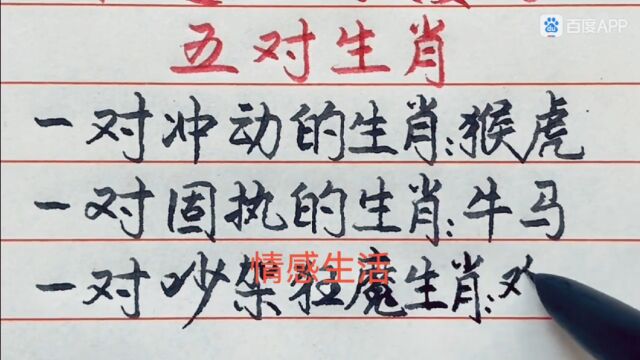 百度APP
五对生肖
一对冲动的生肖:猴虎
一对固执的生肖:牛马
情感生活
一对吵架狂魔生肖: